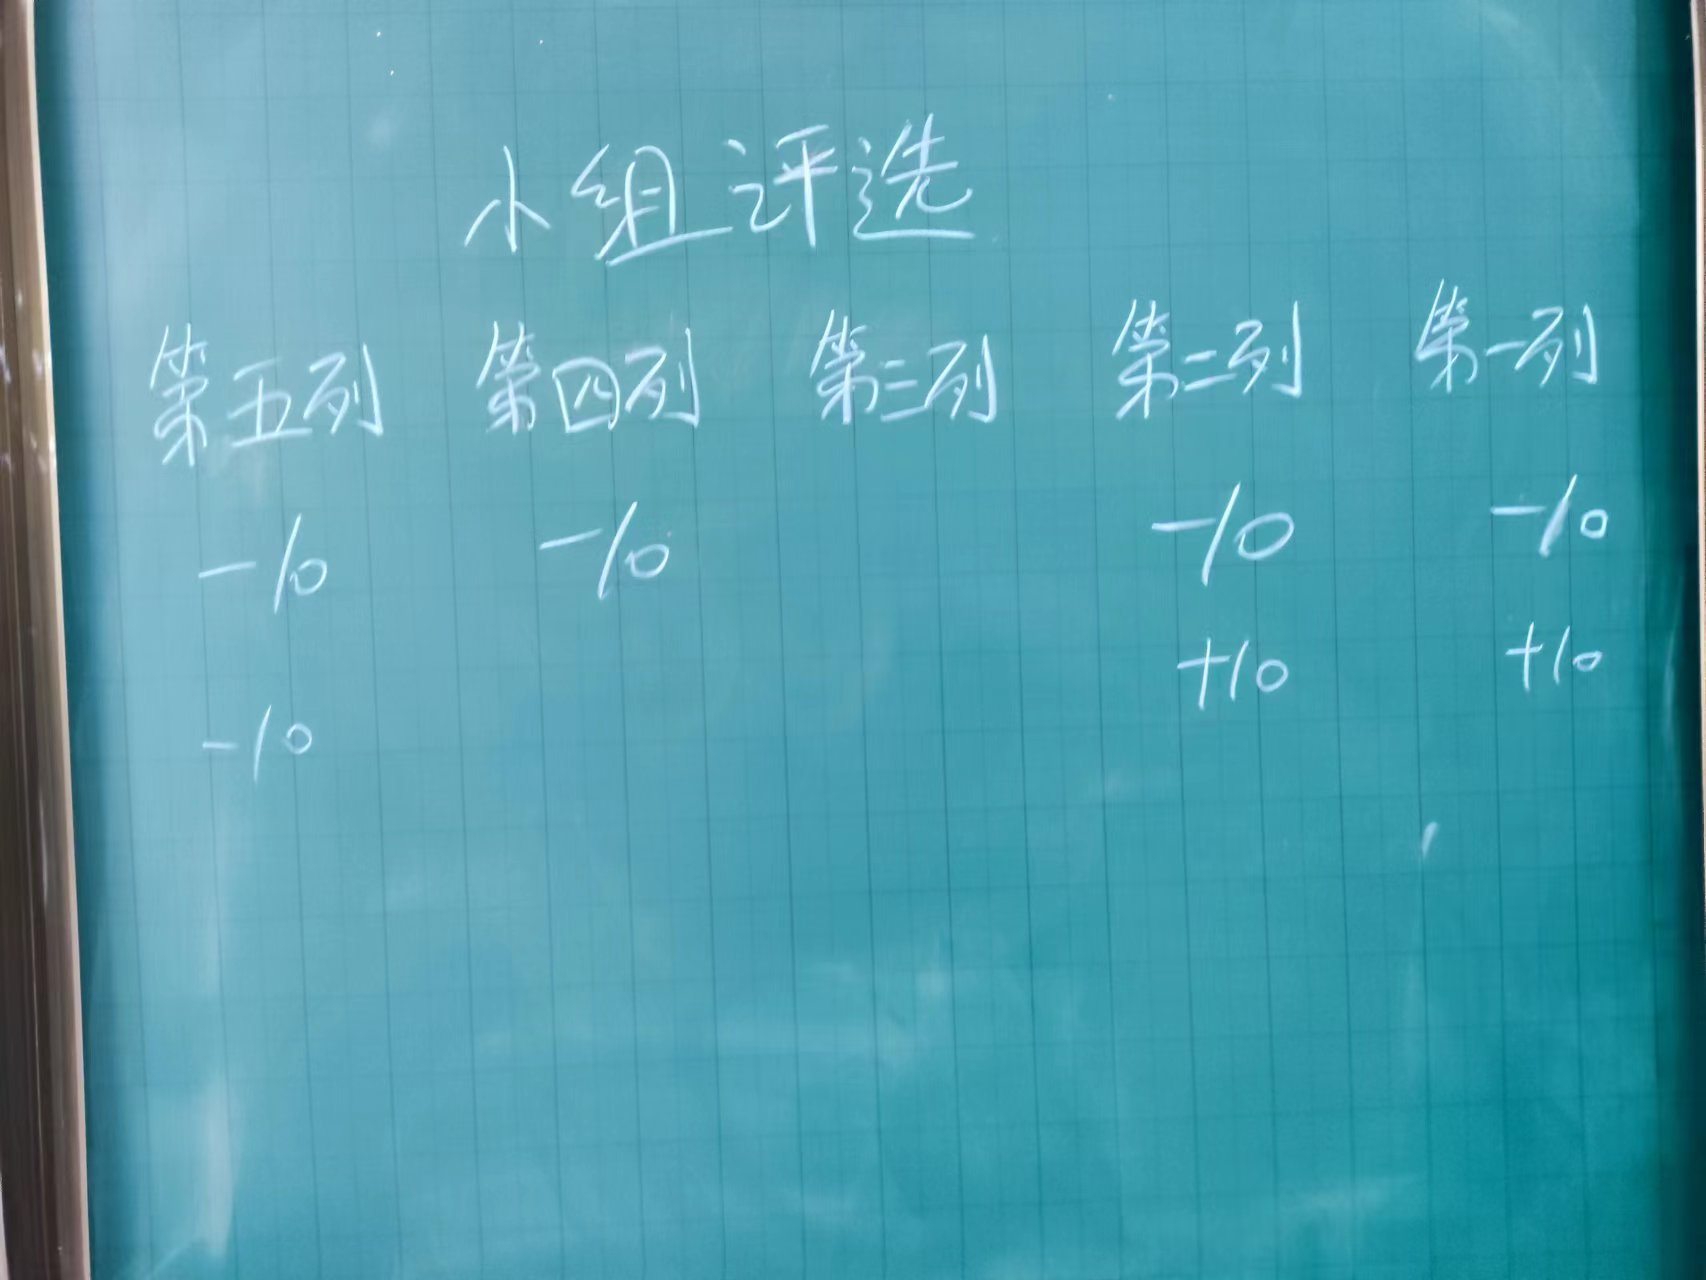 小组评选
第五列 第四列 第三列 第二列 第一列
-10 -10 -10 -10
-10 +10 +10